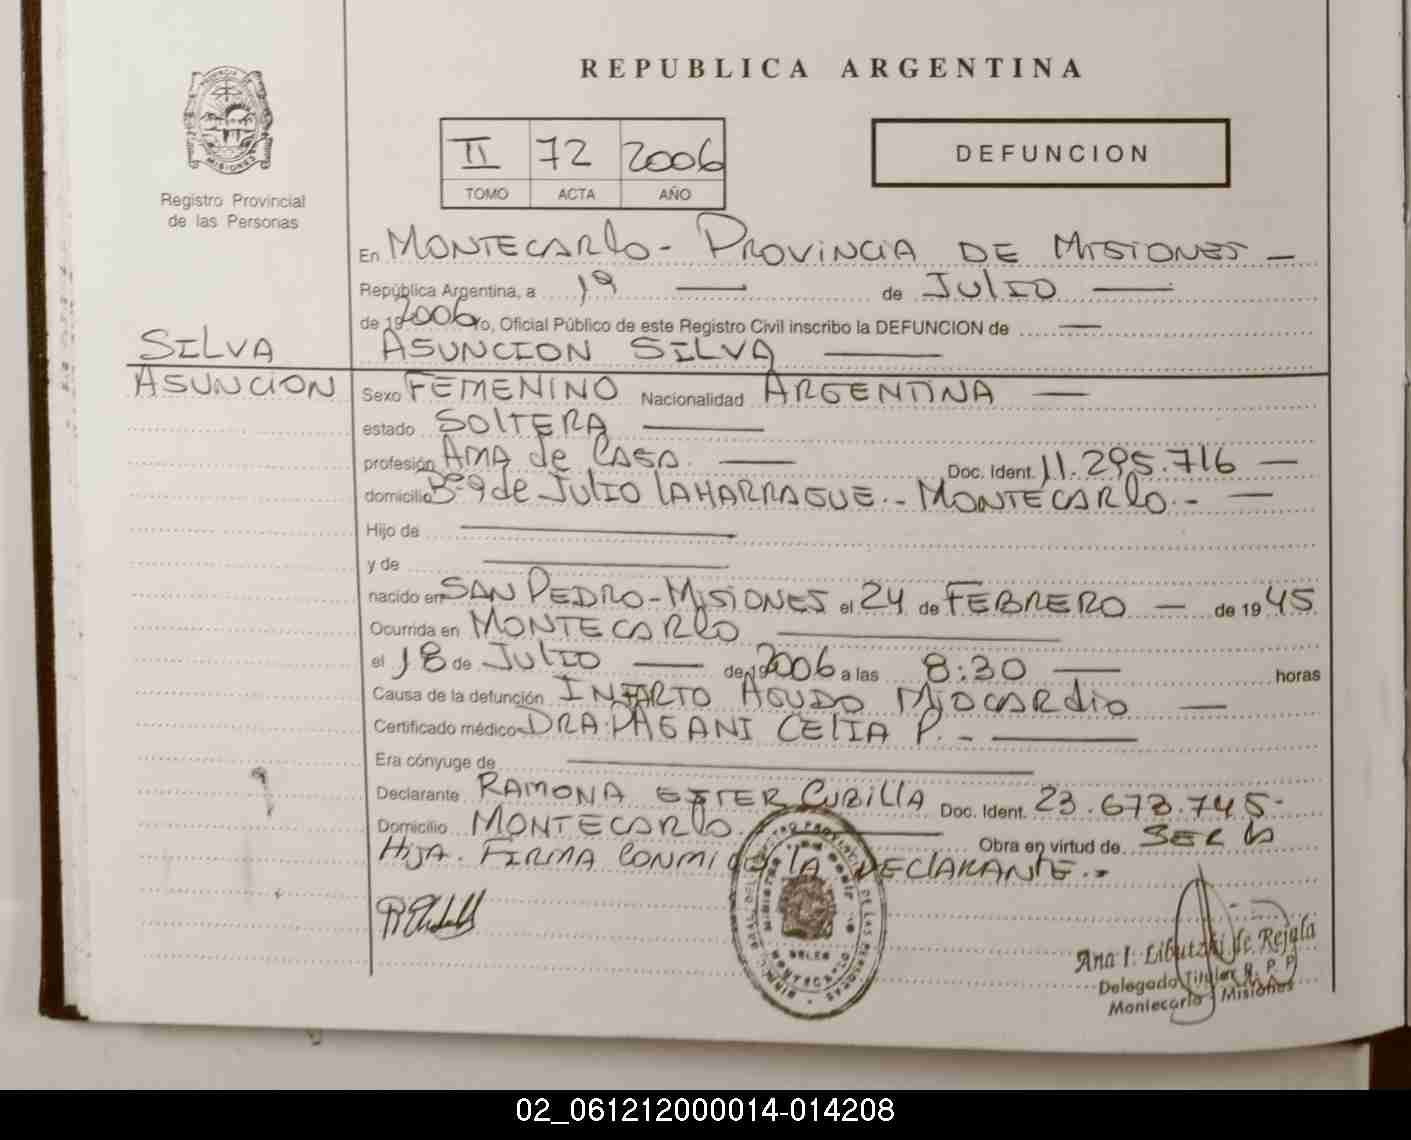 REPUBLICA ARGENTINA
II 72 2006
TOMO ACTA AÑO
DEFUNCION
Registro Provincial
de las Personas
En MONTECARLO - PROVINCIA DE MISIONES -
República Argentina, a 19 de JULIO
de 19 2006 yo, Oficial Público de este Registro Civil inscribo la DEFUNCION de
SILVA
ASUNCION
ASUNCION SILVA
Sexo FEMENINO Nacionalidad ARGENTINA
estado SOLTERA
profesión AMA de CASA Doc. Ident. 11.295.716
domicilio Bº 9 de JULIO LAHARRAGUE.- MONTECARLO.-
Hijo de
y de
nacido en SAN PEDRO - MISIONES el 24 de FEBRERO - de 19 45
Ocurrida en MONTECARLO
el 18 de JULIO de 19 2006 a las 8:30 horas
Causa de la defunción INFARTO AGUDO MIOCARDIO
Certificado médico DRA. PAGANI CELIA P. -
Era cónyuge de
Declarante RAMONA ESTER CUBILLA Doc. Ident. 23.673.745-
Domicilio MONTECARLO. Obra en virtud de SER LA
HIJA. FIRMA CONMIGO LA DECLARANTE.-
Ana I. Libutzki de Rejala
Delegada Titular R. P. P.
Montecarlo - Misiones
MONTECARLO
02_061212000014-014208